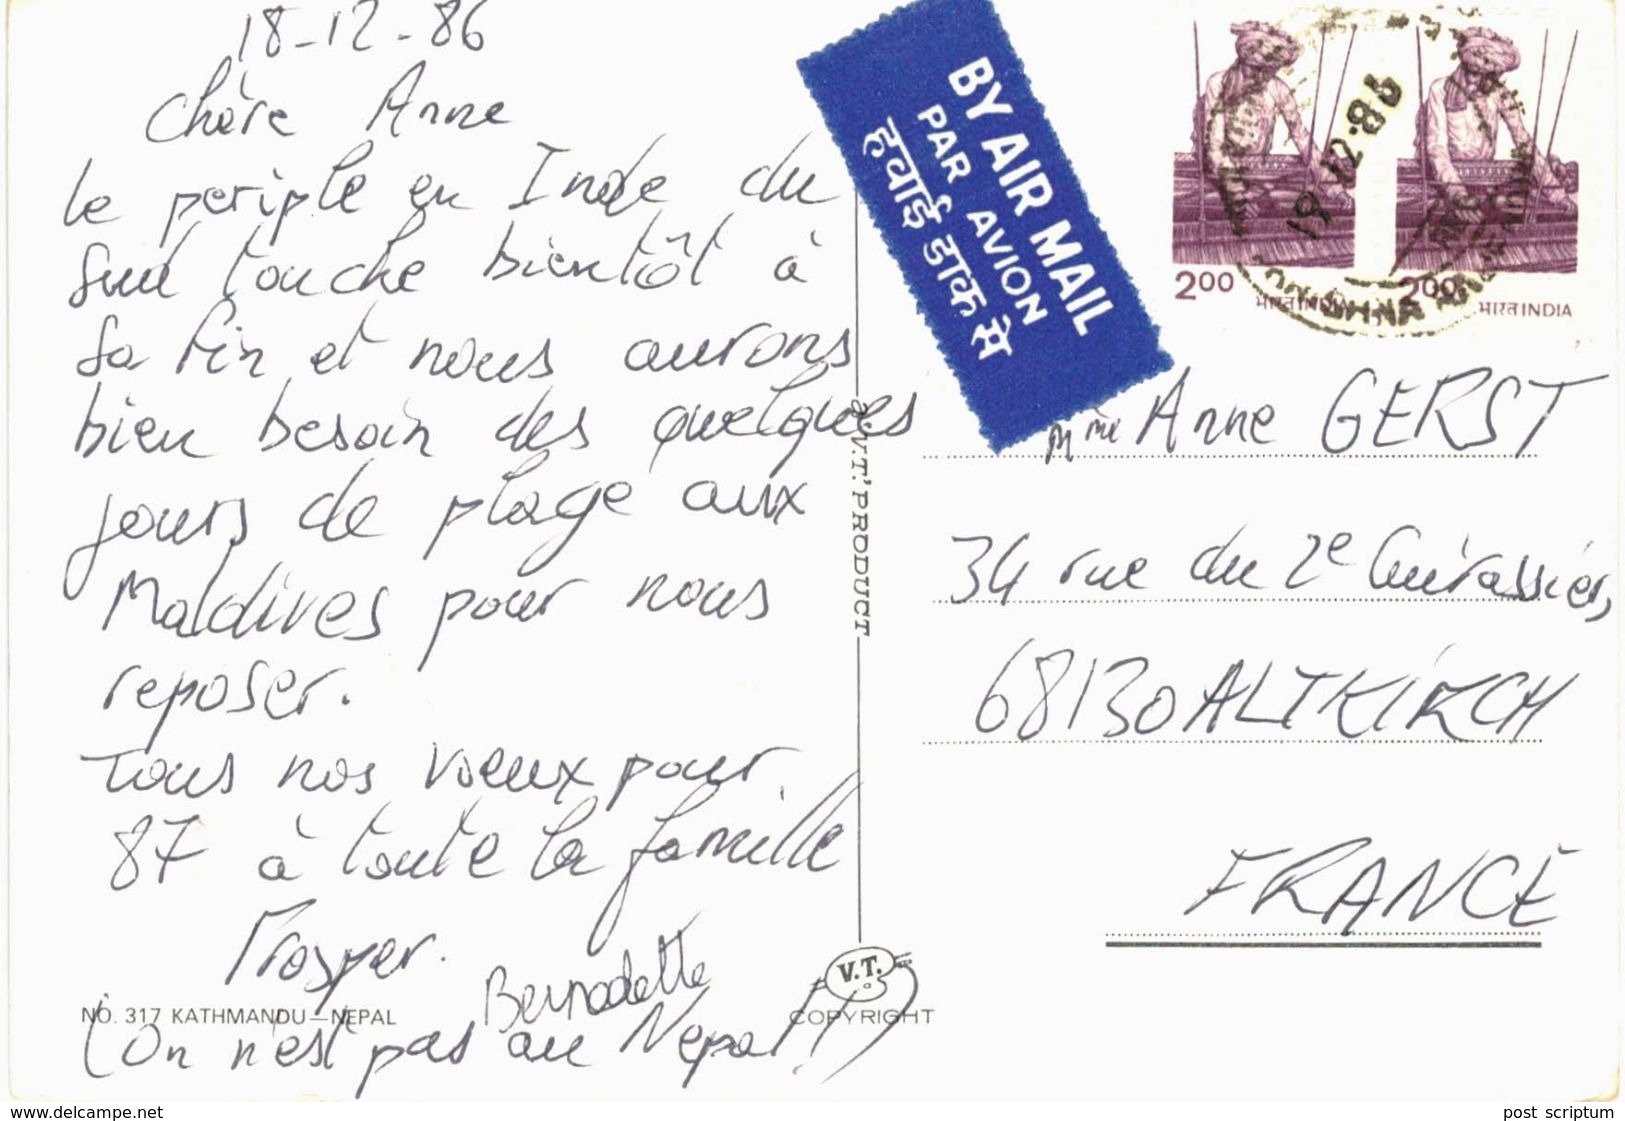 18-12-86
Chère Anne
le periple en Inde du
Sud touche bientôt à
sa fin et nous aurons
bien besoin des quelques
jours de plage aux
Maldives pour nous
reposer.
Tous nos voeux pour
87 à toute la famille
Prosper.
Bernadette
(On n'est pas au Nepal!)
NO. 317 KATHMANDU—NEPAL
V.T. PRODUCT
V.T.
COPYRIGHT
BY AIR MAIL
PAR AVION
हवाई डाक से
19 12.86
2.00 भारत INDIA
2.00 भारत INDIA
Mme Anne GERST
34 rue du 2e Cuirassier,
68130 ALTKIRCH
FRANCE
www.delcampe.net
post scriptum